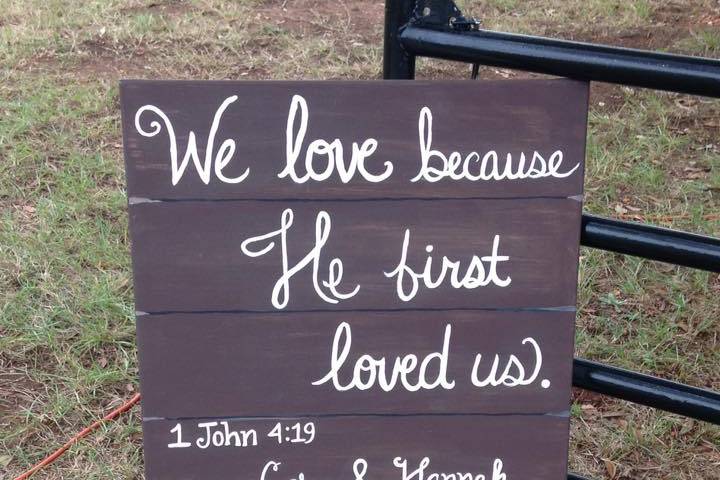 We love because
He first
loved us.
1 John 4:19
& Hannah